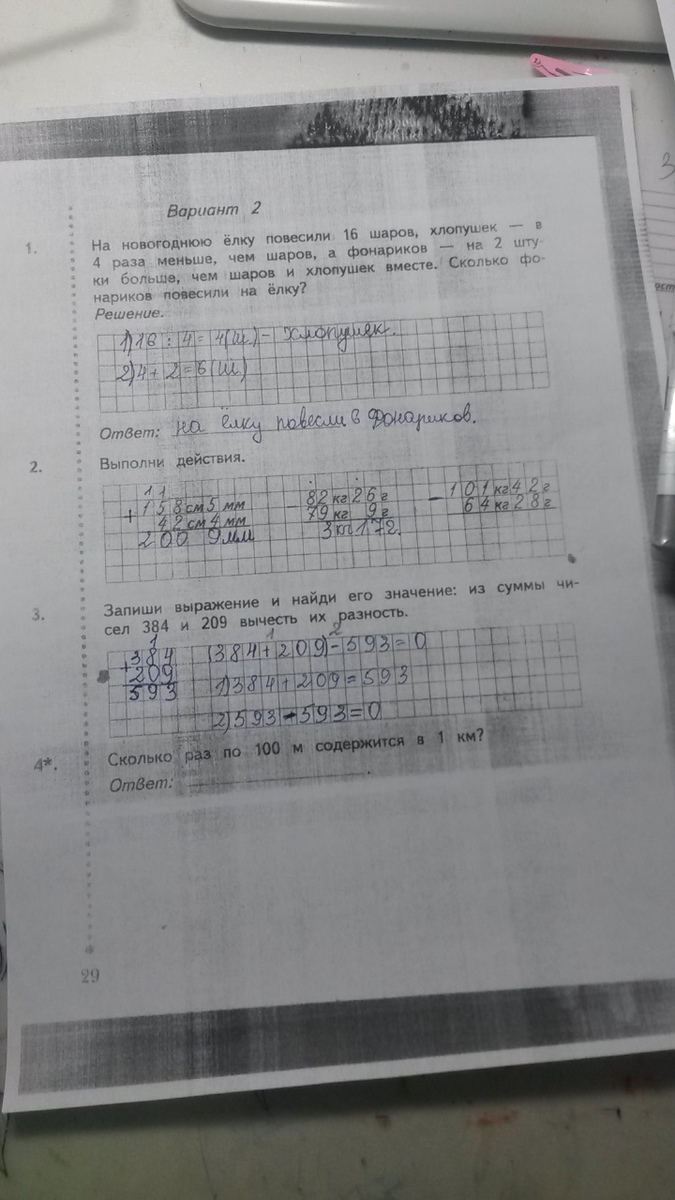 Вариант 2
1.
На новогоднюю ёлку повесили 16 шаров, хлопушек — в
4 раза меньше, чем шаров, а фонариков — на 2 шту-
ки больше, чем шаров и хлопушек вместе. Сколько фо-
нариков повесили на ёлку?
Решение.
1) 16 : 4 = 4 (ш.) - хлопушек.
2) 4 + 2 = 6 (ш.)
Ответ: на ёлку повесли 6 Фонариков.
2.
Выполни действия.
1 1
+ 158 см 5 мм
42 см 4 мм
200 9 мм
− 82 кг 26 г
79 кг 9 г
3 кг 17 г.
− 101 кг 42 г
64 кг 28 г
3.
Запиши выражение и найди его значение: из суммы чи-
сел 384 и 209 вычесть их разность.
1
+384
209
593
1 2
(384+209)-593=0
1) 384+209=593
2) 593-593=0
4*.
Сколько раз по 100 м содержится в 1 км?
Ответ:
29